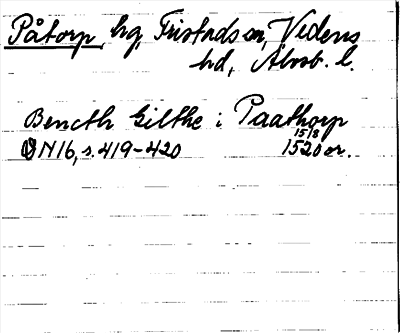 Påtorp, hg, Fristads sn, Vedens
hd, Älvsb. l.
Bencth Gilthe i Paathorp
15/8
ÖN16, s. 419-420 1520 or.